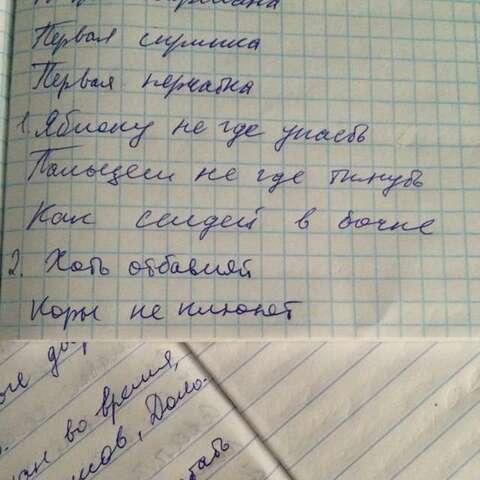 Первая скрипка
Первая перчатка
1. Яблоку не где упасть
Пальцем не где ткнуть
Как сельдей в бочке
2. Хоть отбавляй
Куры не клюют
во время,